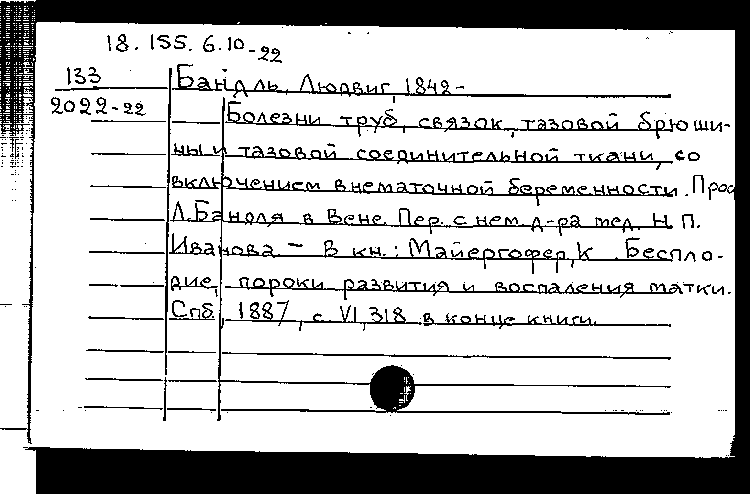 18.155.6.10-22
133 Бандль, Людвиг, 1842-
2022-22 Болезни труб, связок, тазовой брюши-
ны и тазовой соединительной ткани, со
включением внематочной беременности. Проф
Л. Бандля в Вене. Пер. с нем. д-ра мед. Н. П.
Иванова. - В кн.: Майергофер, К. Беспло-
дие, пороки развития и воспаления матки.
Спб, 1887, с. VI, 318 в конце книги.